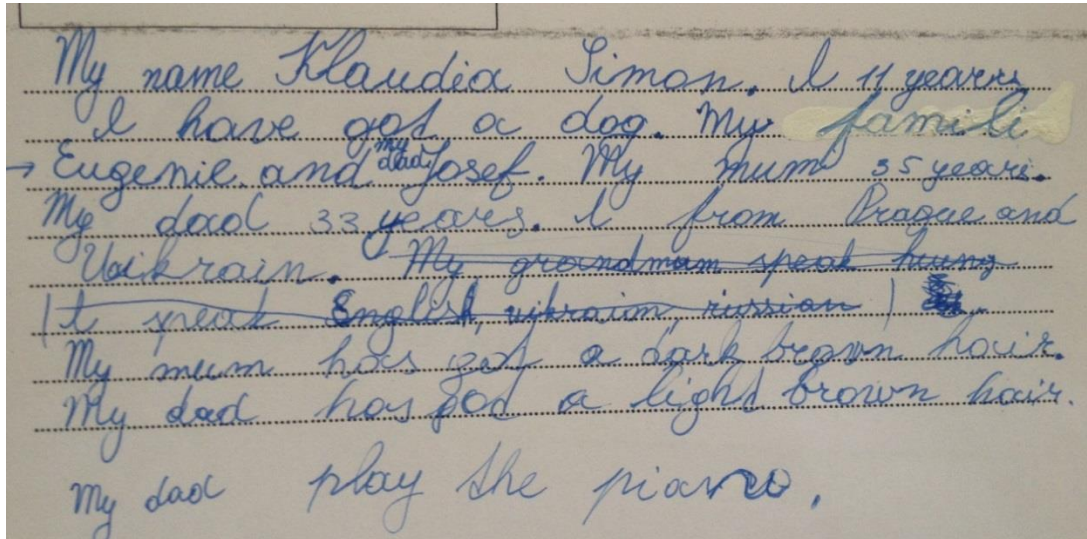 My name Klaudia Simon. I 11 years
I have got a dog. My famili
→ Eugenie and my dad Josef. My mum 35 years.
My dad 33 years. I from Prague and
Ukikrain. My grandmum speak hung
(I speak English, uikraion, rissian)
My mum has got a dark brown hair.
My dad has god a light brown hair.
My dad play the piano.